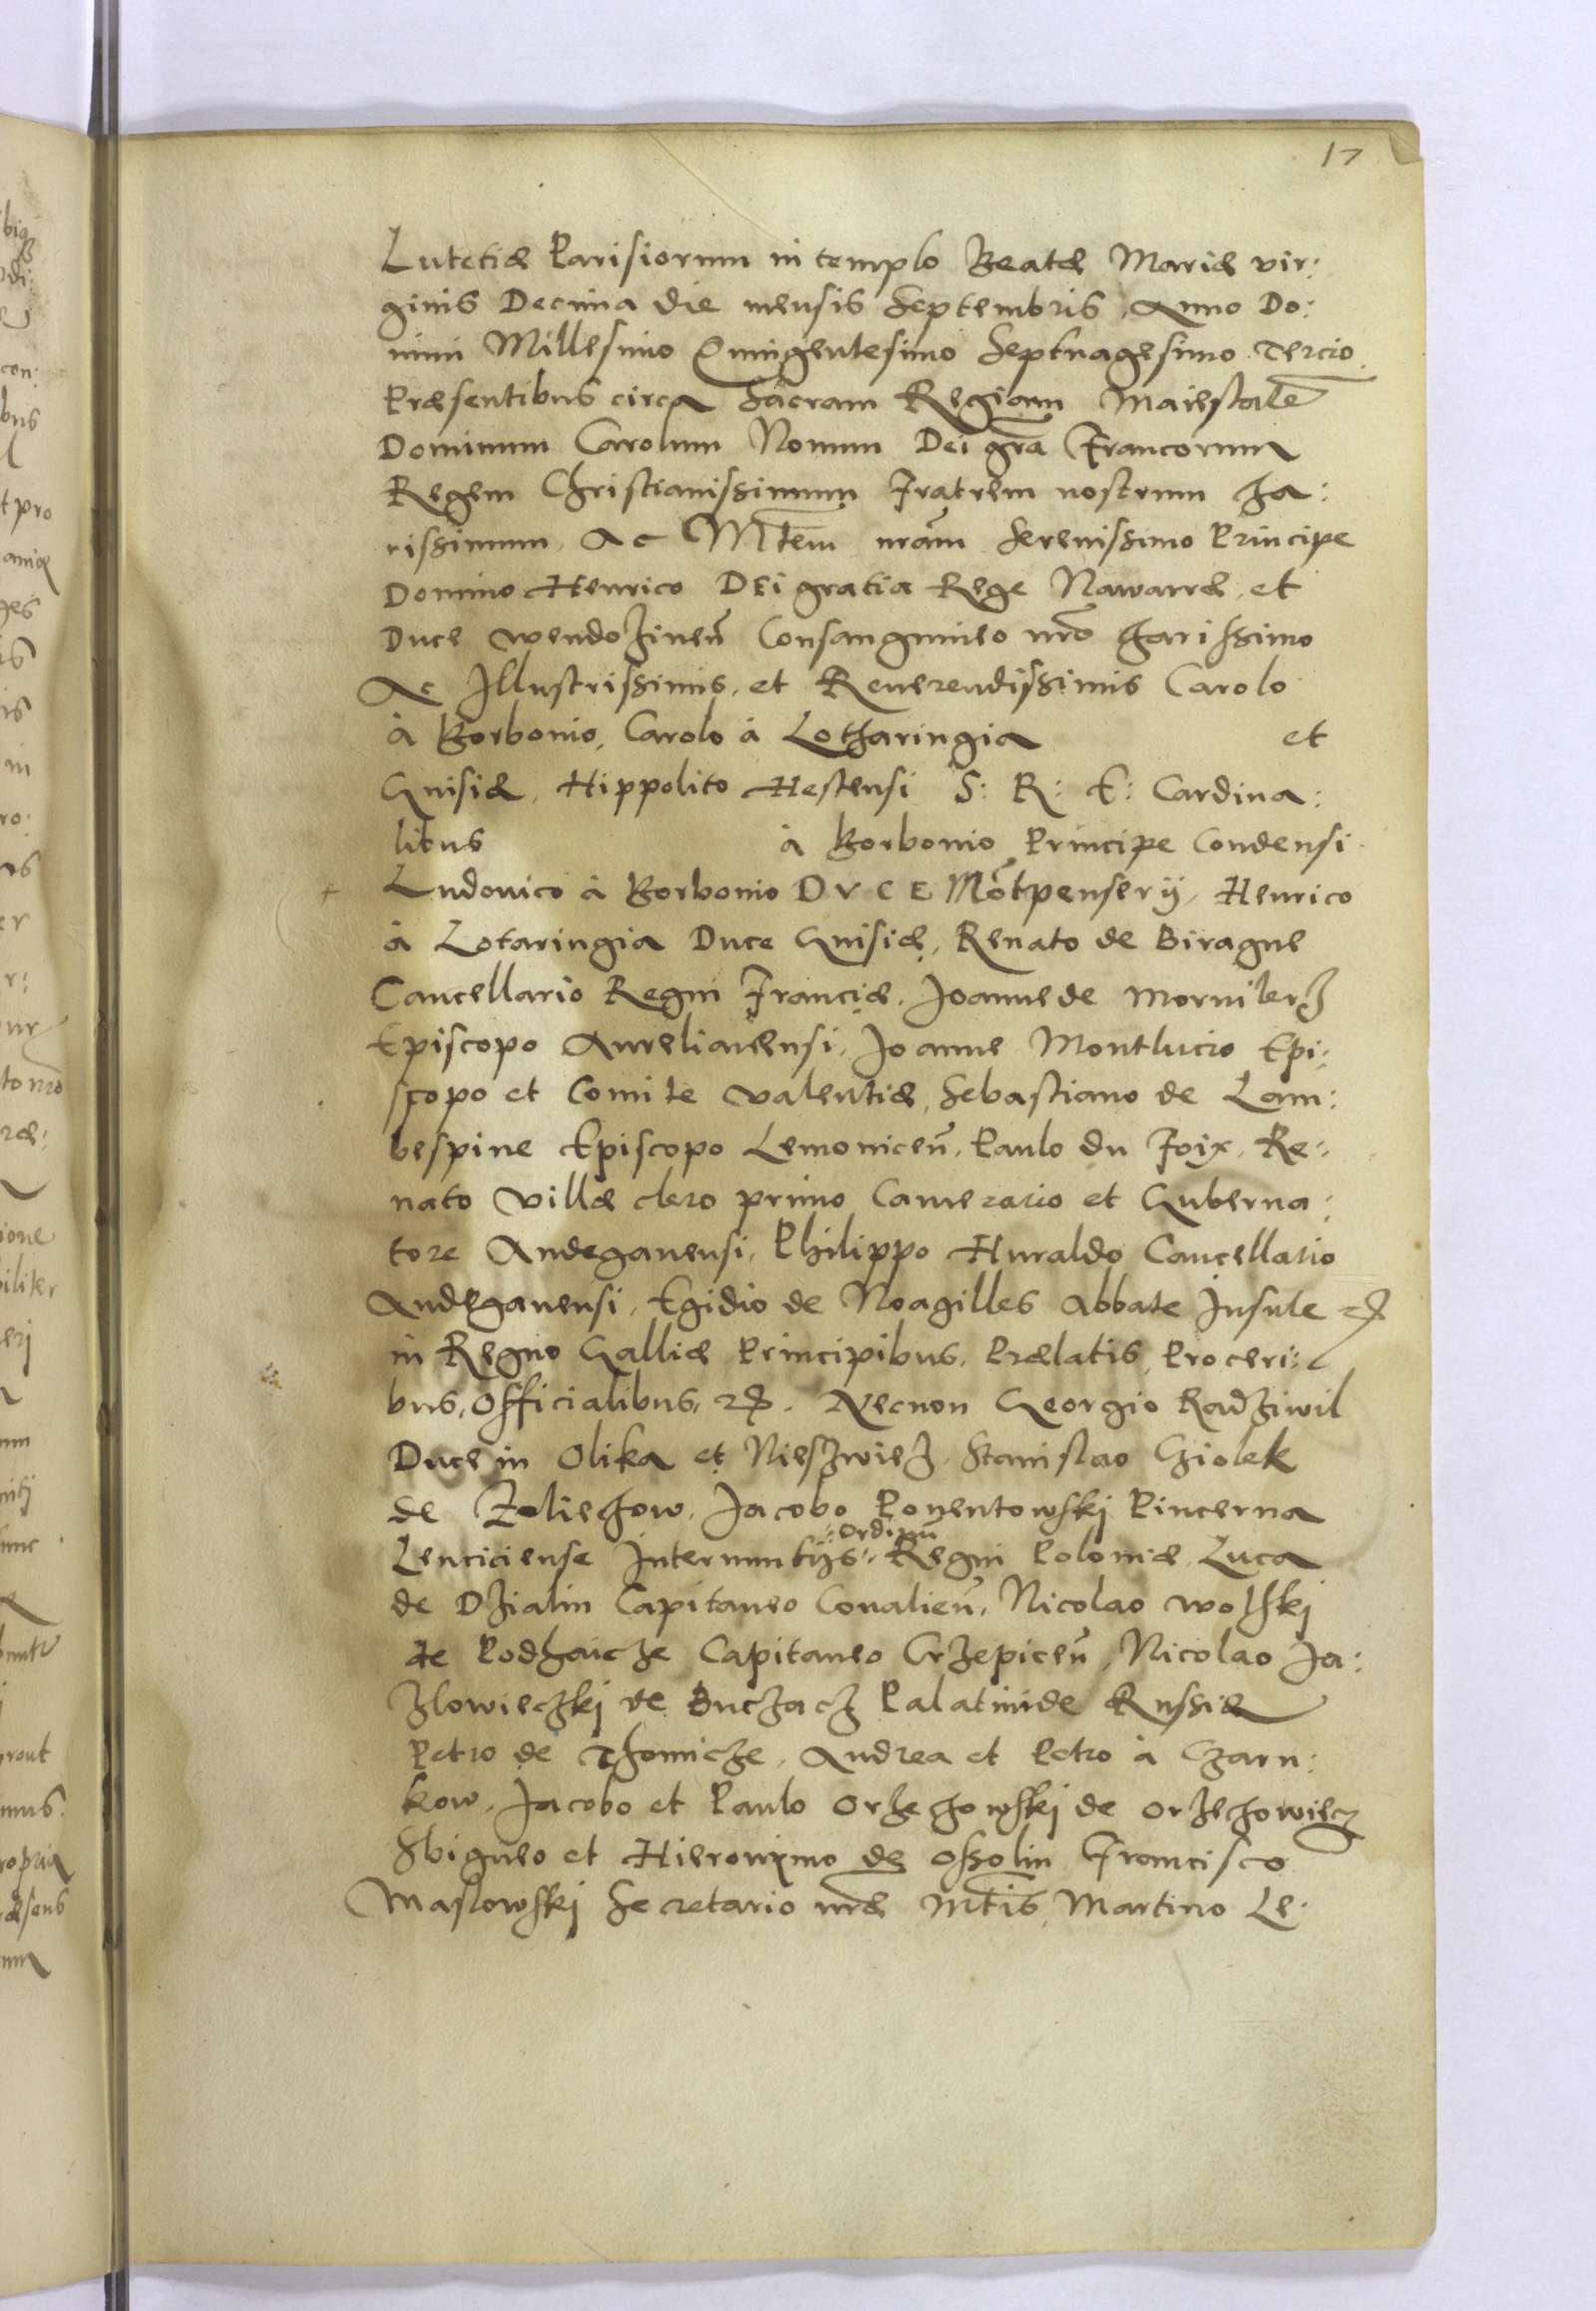 17
Lutetiæ Parisiorum in templo Beatæ Mariæ vir:
ginis Decima die mensis Septembris, Anno Do:
mini Millesimo Quingentesimo Septuagesimo Tercio
Præsentibus circa Sacram Regiam Maiestatē
Dominum Carolum Nonum Dei gra Francorum
Regem Christianissimum Fratrem nostrum cha:
rissimum, Ac Mtem nram Serenissimo Principe
Domino Henrico Dei gratia Rege Nawarræ, et
Duce wendozineñ Consanguineo nro charissimo
Ac Illustrissimis, et Reuerendissimis Carolo
à Borbonio, Carolo à Lotharingia et
Guisiæ, Hippolito Hestensi S: R: E: Cardina:
libus à Borbonio Principe Condensi
Ludouico à Borbonio DVCE Mōtpenserij, Henrico
à Lotaringia Duce Guisiæ, Renato de Birague
Cancellario Regni Franciæ, Joanne de Morvilerz
Episcopo Aurelianensi, Joanne Montlucio Epi:
scopo et Comite valentiæ, Sebastiano de Lam:
bespine Episcopo Lemoniceñ, Paulo du Foix, Re:
nato villæ clero primo Camerario et Guberna:
tore Andegauensi, Philippo Huraldo Cancellario
Andegauensi, Egidio de Noagilles Abbate Insule
in Regno Galliæ Principibus, Prælatis, Proceri:
bus, Officialibus, Necnon Georgio Radziwil
Duce in Olika et Nieszwiez, Stanislao Cziolek
de Zeliechow, Jacobo Ponentowskj Pincerna
:Ordinū
Lenciciense Internuntijs: Regni Poloniæ, Luca
de Dzialin Capitaneo Coualieñ, Nicolao wolskj
de Podhaicze Capitaneo Crzepiceñ, Nicolao Ja:
zlowieczkj de Buczacz Palatinide Russiæ
Petro de Thomicze, Andrea et Petro à Czarn:
kow, Jacobo et Paulo Orzechowskj de Orzechowiecz
Sbigneo et Hieronimo de Ossolin Francisco
Maslowskj Secretario nræ Mtis, Martino Le: